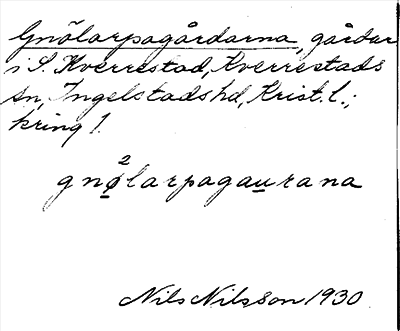 Gnölarpagårdarna, gårdar
i S. Kverrestad, Kverrestads
sn, Ingelstads hd, Krist. l.;
kring 1.
gnø²larpagaurana
Nils Nilsson 1930